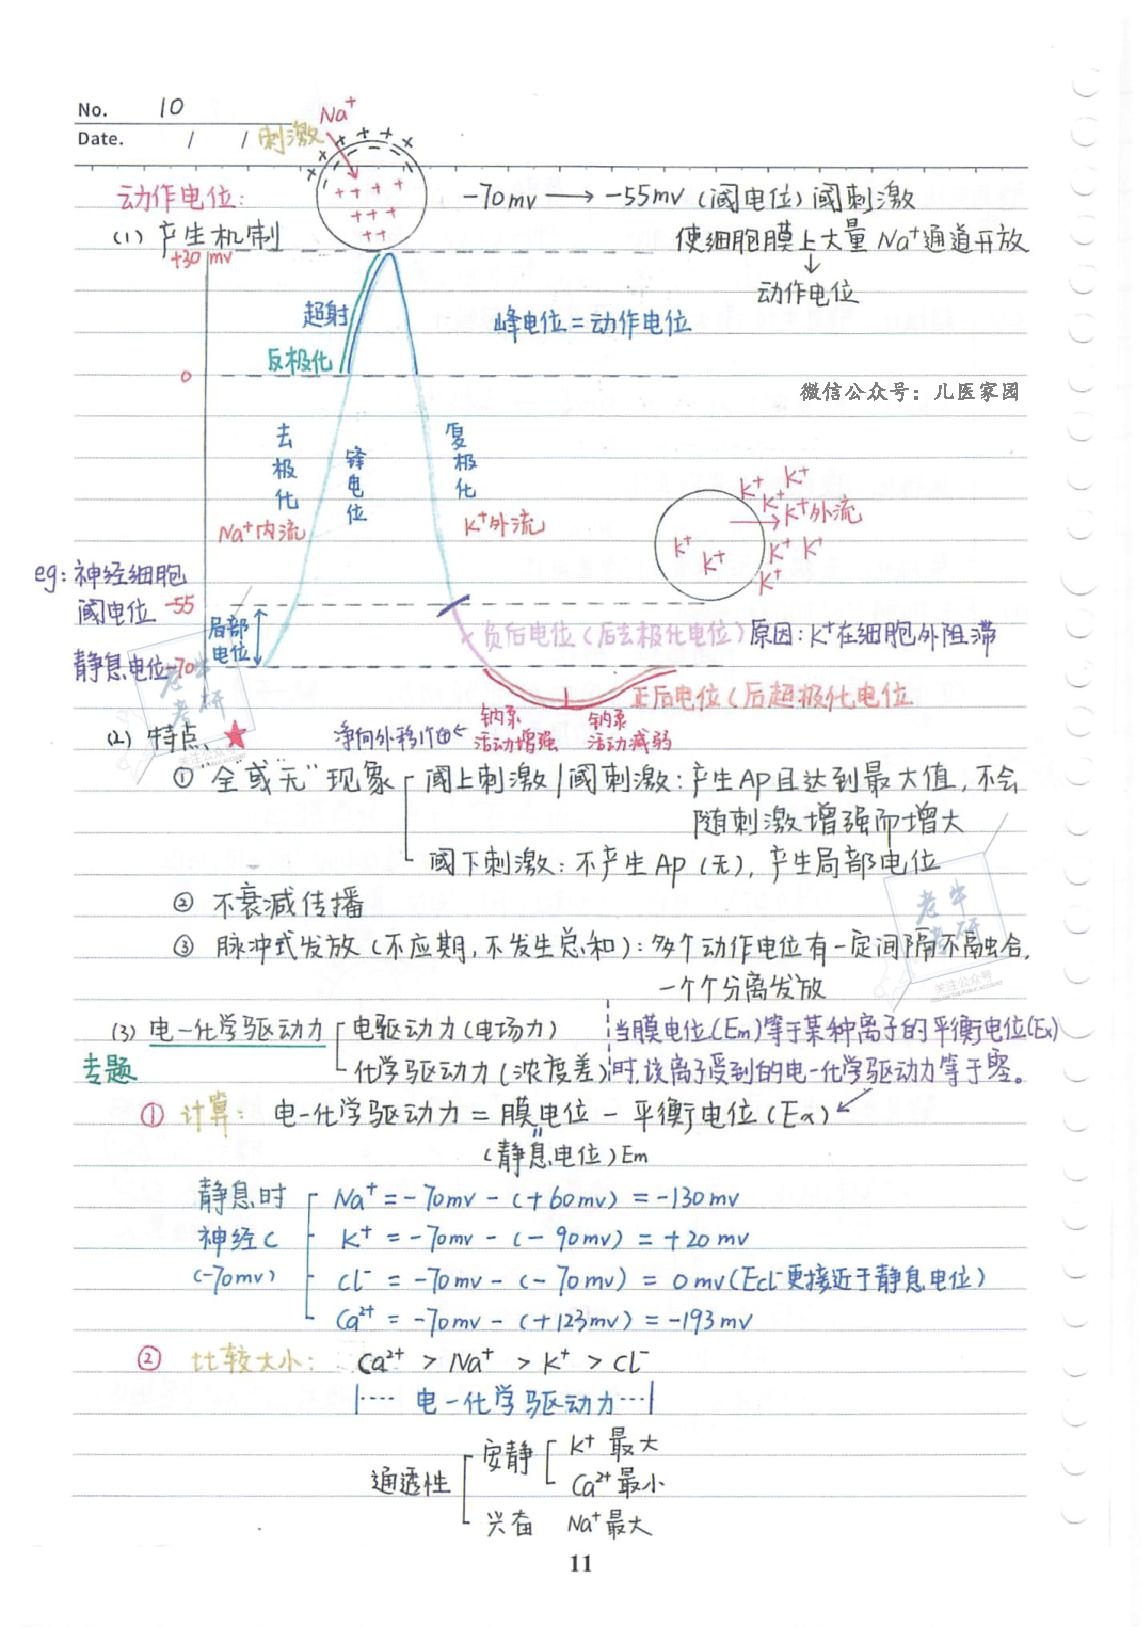 No. 10
Date. / /
刺激 Na⁺
动作电位:
-70mv → -55mv (阈电位) 阈刺激
(1) 产生机制
使细胞膜上大量 Na⁺通道开放
↓
动作电位
+30 mv
超射
峰电位=动作电位
反极化
0
微信公众号：儿医家园
去极化
锋电位
复极化
Na⁺内流
K⁺外流
K⁺ K⁺ K⁺
K⁺外流
K⁺ K⁺
K⁺ K⁺
K⁺
eg: 神经细胞
阈电位 -55
局部电位
负后电位 (后去极化电位) 原因: K⁺在细胞外阻滞
静息电位-70
正后电位 (后超极化电位
钠泵活动增强
钠泵活动减弱
(2) 特点 ★
① "全或无"现象
阈上刺激/阈刺激: 产生Ap且达到最大值, 不会
随刺激增强而增大
阈下刺激: 不产生Ap (无), 产生局部电位
② 不衰减传播
③ 脉冲式发放 (不应期, 不发生总和): 多个动作电位有一定间隔不融合,
一个个分离发放
老牛考研
关注公众号
(3) 电-化学驱动力
电驱动力 (电场力)
化学驱动力 (浓度差)
专题
当膜电位(Em)等于某种离子的平衡电位(Ex)
时, 该离子受到的电-化学驱动力等于零。
① 计算: 电-化学驱动力 = 膜电位 - 平衡电位 (Ex)
(静息电位) Em
静息时
神经C
(-70mv)
Na⁺ = -70mv - (+60mv) = -130mv
K⁺ = -70mv - (-90mv) = +20mv
cl⁻ = -70mv - (-70mv) = 0mv (Ecl⁻更接近于静息电位)
Ca²⁺ = -70mv - (+123mv) = -193mv
② 比较大小: Ca²⁺ > Na⁺ > K⁺ > cl⁻
|···· 电-化学驱动力 ···|
通透性
安静 K⁺ 最大
Ca²⁺ 最小
兴奋 Na⁺最大
11